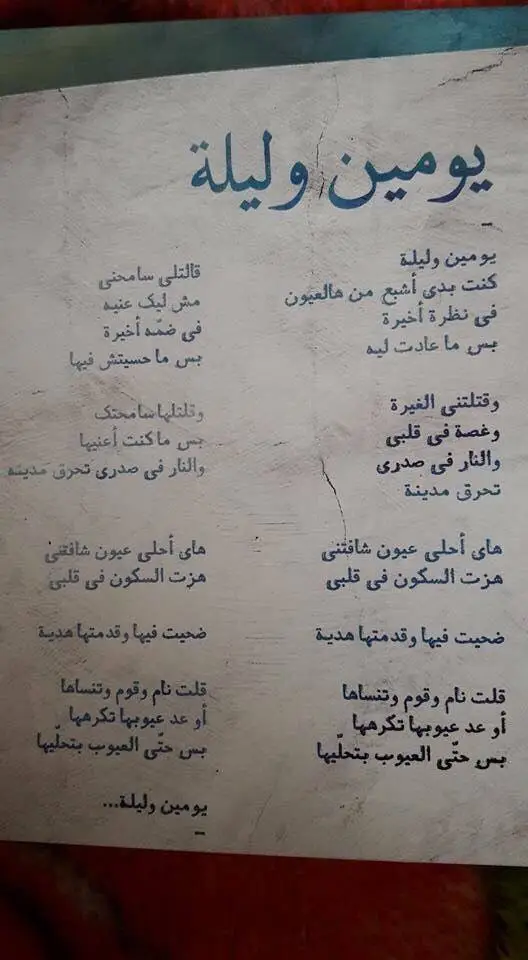 يومين وليلة
يومين وليلة
كنت بدي أشبع من هالعيون
في نظرة أخيرة
بس ما عادت ليه
وقتلتني الغيرة
وغصة في قلبي
والنار في صدري
تحرق مدينة
هاي أحلى عيون شافتني
هزت السكون في قلبي
ضحيت فيها وقدمتها هدية
قلت نام وقوم وتنساها
أو عد عيوبها تكرهها
بس حتّى العيوب بتحلّيها
قالتلي سامحني
مش ليك عنيه
في ضمّه أخيرة
بس ما حسيتش فيها
وقلتلها سامحتك
بس ما كنت أعنيها
والنار في صدري تحرق مدينه
هاي أحلى عيون شافتني
هزت السكون في قلبي
ضحيت فيها وقدمتها هدية
قلت نام وقوم وتنساها
أو عد عيوبها تكرهها
بس حتّى العيوب بتحلّيها
يومين وليلة...